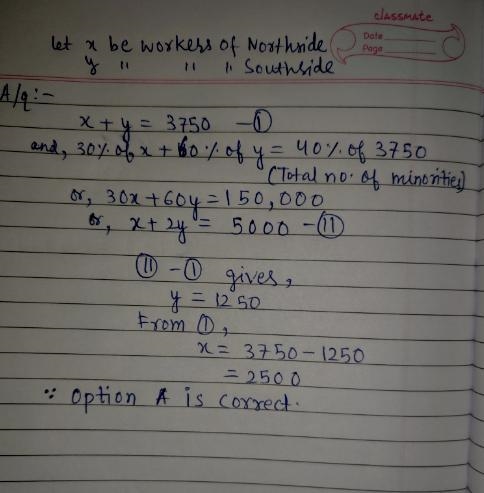 classmate
Date
Page
let x be workers of Northside
y " " " Southside
A/q:-
x + y = 3750 - I
and, 30% of x + 60% of y = 40% of 3750
(Total no. of minorities)
or, 30x + 60y = 150,000
or, x + 2y = 5000 - II
II - I gives,
y = 1250
From I,
x = 3750 - 1250
= 2500
∵ option A is correct.